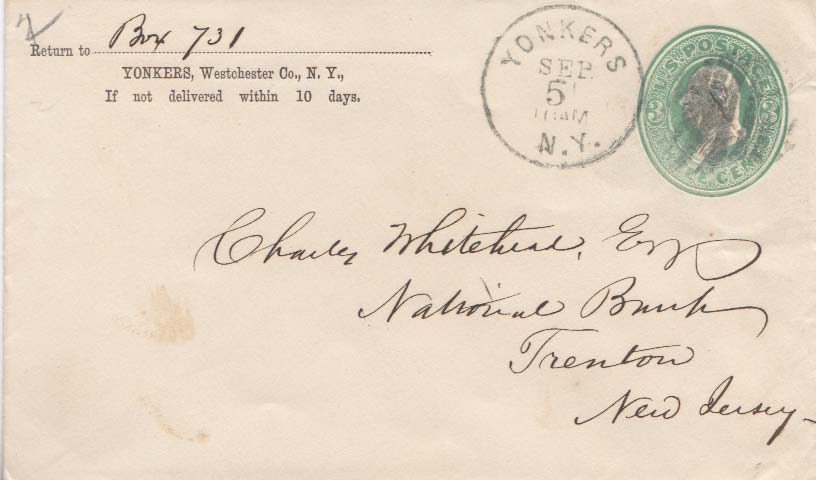 Return to Box 731
YONKERS, Westchester Co., N. Y.,
If not delivered within 10 days.
YONKERS
SEP
5
AM
N.Y.
U.S. POSTAGE
3 3
CENTS
Charles Whitehead, Esq
National Bank
Trenton
New Jersey